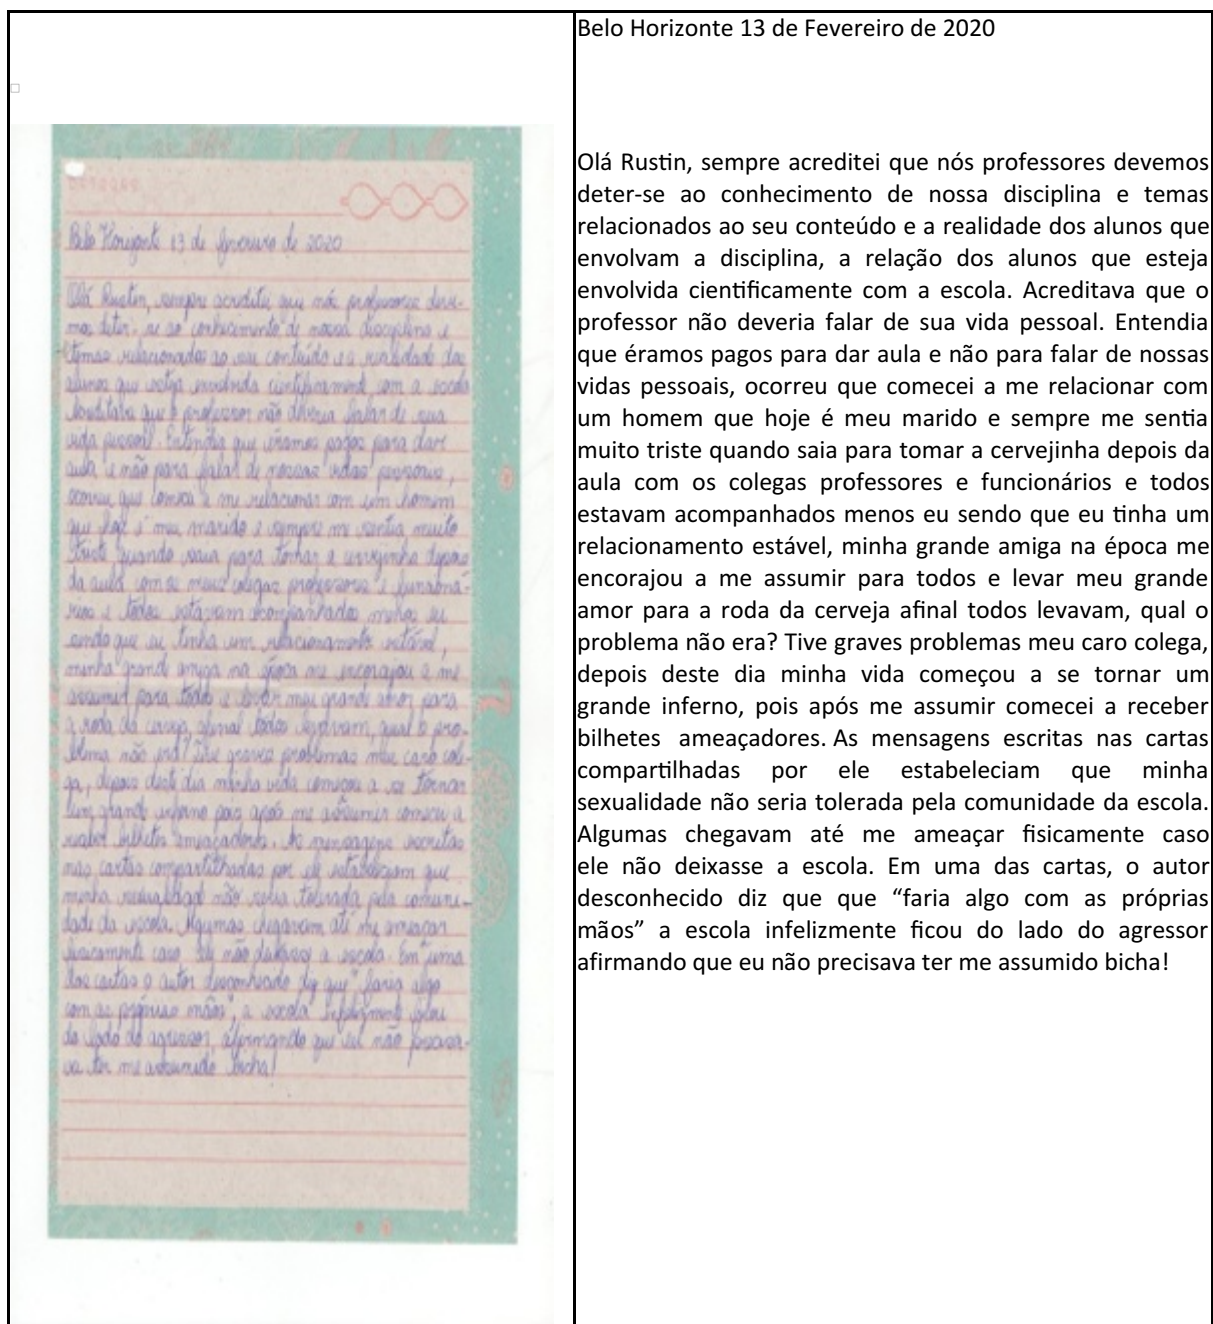 Belo Horizonte 13 de fevereiro de 2020
Olá Rustin, sempre acreditei que nós professores deve-
mos deter-se ao conhecimento de nossa disciplina e
temas relacionados ao seu conteúdo e a realidade dos
alunos que esteja envolvida cientificamente com a escola
Acreditava que o professor não deveria falar de sua
vida pessoal. Entendia que éramos pagos para dar
aula e não para falar de nossas vidas pessoais,
ocorreu que comecei a me relacionar com um homem
que hoje é meu marido e sempre me sentia muito
triste quando saia para tomar a cervejinha depois
da aula com os meus colegas professores e funcioná-
rios e todos estavam acompanhados menos eu
sendo que eu tinha um relacionamento estável,
minha grande amiga na época me encorajou a me
assumir para todos e levar meu grande amor para
a roda da cerveja, afinal todos levavam, qual o pro-
blema não era? Tive graves problemas meu caro cole-
ga, depois deste dia minha vida começou a se tornar
um grande inferno pois após me assumir comecei a
receber bilhetes ameaçadores. As mensagens escritas
nas cartas compartilhadas por ele estabeleciam que
minha sexualidade não seria tolerada pela comuni-
dade da escola. Algumas chegavam até me ameaçar
fisicamente caso não deixasse a escola. Em uma
das cartas o autor desconhecido diz que "faria algo
com as próprias mãos", a escola infelizmente ficou
do lado do agressor, afirmando que eu não precisa-
va ter me assumido bicha!
Belo Horizonte 13 de Fevereiro de 2020
Olá Rustin, sempre acreditei que nós professores devemos
deter-se ao conhecimento de nossa disciplina e temas
relacionados ao seu conteúdo e a realidade dos alunos que
envolvam a disciplina, a relação dos alunos que esteja
envolvida cientificamente com a escola. Acreditava que o
professor não deveria falar de sua vida pessoal. Entendia
que éramos pagos para dar aula e não para falar de nossas
vidas pessoais, ocorreu que comecei a me relacionar com
um homem que hoje é meu marido e sempre me sentia
muito triste quando saia para tomar a cervejinha depois da
aula com os colegas professores e funcionários e todos
estavam acompanhados menos eu sendo que eu tinha um
relacionamento estável, minha grande amiga na época me
encorajou a me assumir para todos e levar meu grande
amor para a roda da cerveja afinal todos levavam, qual o
problema não era? Tive graves problemas meu caro colega,
depois deste dia minha vida começou a se tornar um
grande inferno, pois após me assumir comecei a receber
bilhetes ameaçadores. As mensagens escritas nas cartas
compartilhadas por ele estabeleciam que minha
sexualidade não seria tolerada pela comunidade da escola.
Algumas chegavam até me ameaçar fisicamente caso
ele não deixasse a escola. Em uma das cartas, o autor
desconhecido diz que que “faria algo com as próprias
mãos” a escola infelizmente ficou do lado do agressor
afirmando que eu não precisava ter me assumido bicha!